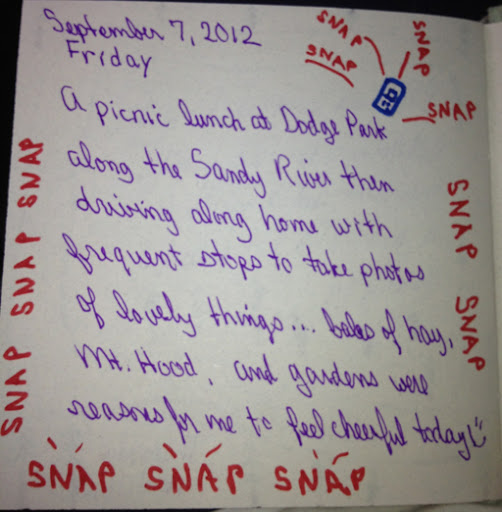 September 7, 2012
Friday
SNAP
SNAP
SNAP
SNAP
A picnic lunch at Dodge Park
along the Sandy River then
driving along home with
frequent stops to take photos
of lovely things... bales of hay,
Mt. Hood, and gardens were
reasons for me to feel cheerful today!
SNAP SNAP SNAP
SNAP SNAP
SNAP SNAP SNAP